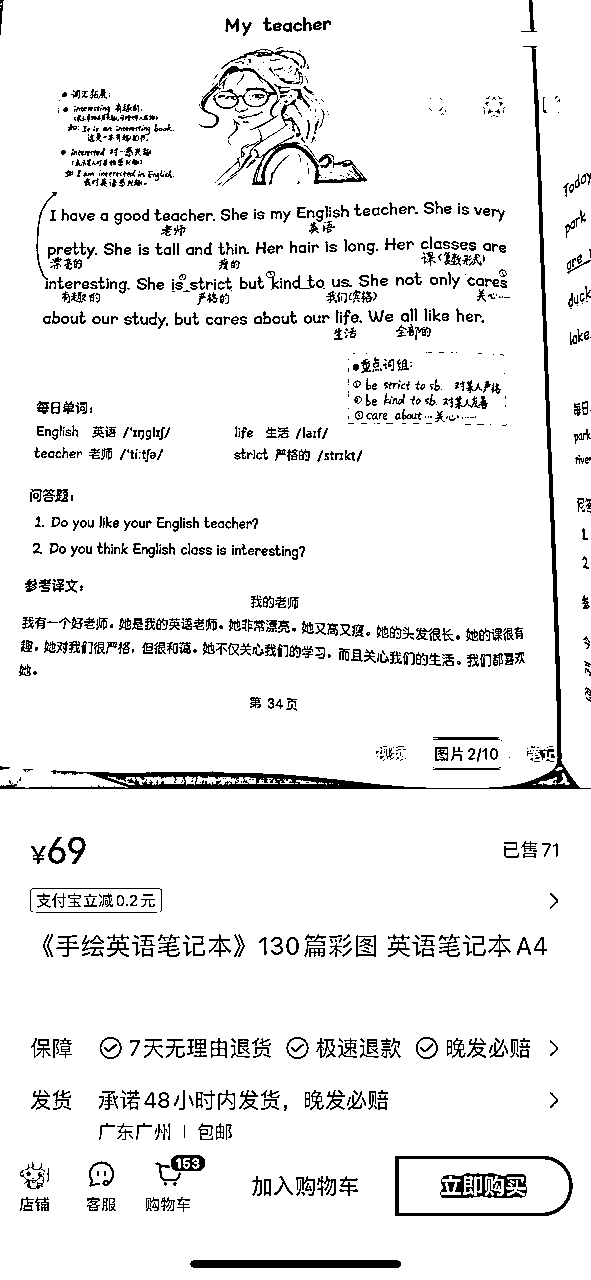 My teacher
● 词汇拓展:
● interesting 有趣的.
如: It is an interesting book.
这是一本有趣的书.
● interested 对…感兴趣
如 I am interested in English.
我对英语感兴趣。
I have a good teacher. She is my English teacher. She is very
老师 英语
pretty. She is tall and thin. Her hair is long. Her classes are
漂亮的 瘦的 课(复数形式)
interesting. She is strict but kind to us. She not only cares
有趣的 严格的 我们(宾格) 关心……
about our study, but cares about our life. We all like her.
生活 全部的
●重点词组:
① be strict to sb. 对某人严格
② be kind to sb. 对某人友善
③ care about … 关心……
每日单词:
English 英语 /ˈɪŋɡlɪʃ/ life 生活 /laɪf/
teacher 老师 /ˈtiːtʃə/ strict 严格的 /strɪkt/
问答题:
1. Do you like your English teacher?
2. Do you think English class is interesting?
参考译文:
我的老师
我有一个好老师。她是我的英语老师。她非常漂亮。她又高又瘦。她的头发很长。她的课很有
趣。她对我们很严格,但很和蔼。她不仅关心我们的学习,而且关心我们的生活。我们都喜欢
她。
第 34 页
Today
park
are
duck
lake.
每日
park
river
问答
1.
2.
视频 图片 2/10 笔记
¥69 已售 71
支付宝立减0.2元
《手绘英语笔记本》130篇彩图 英语笔记本A4
保障 7天无理由退货 极速退款 晚发必赔
发货 承诺48小时内发货，晚发必赔
广东广州 | 包邮
153
店铺 客服 购物车 加入购物车 立即购买